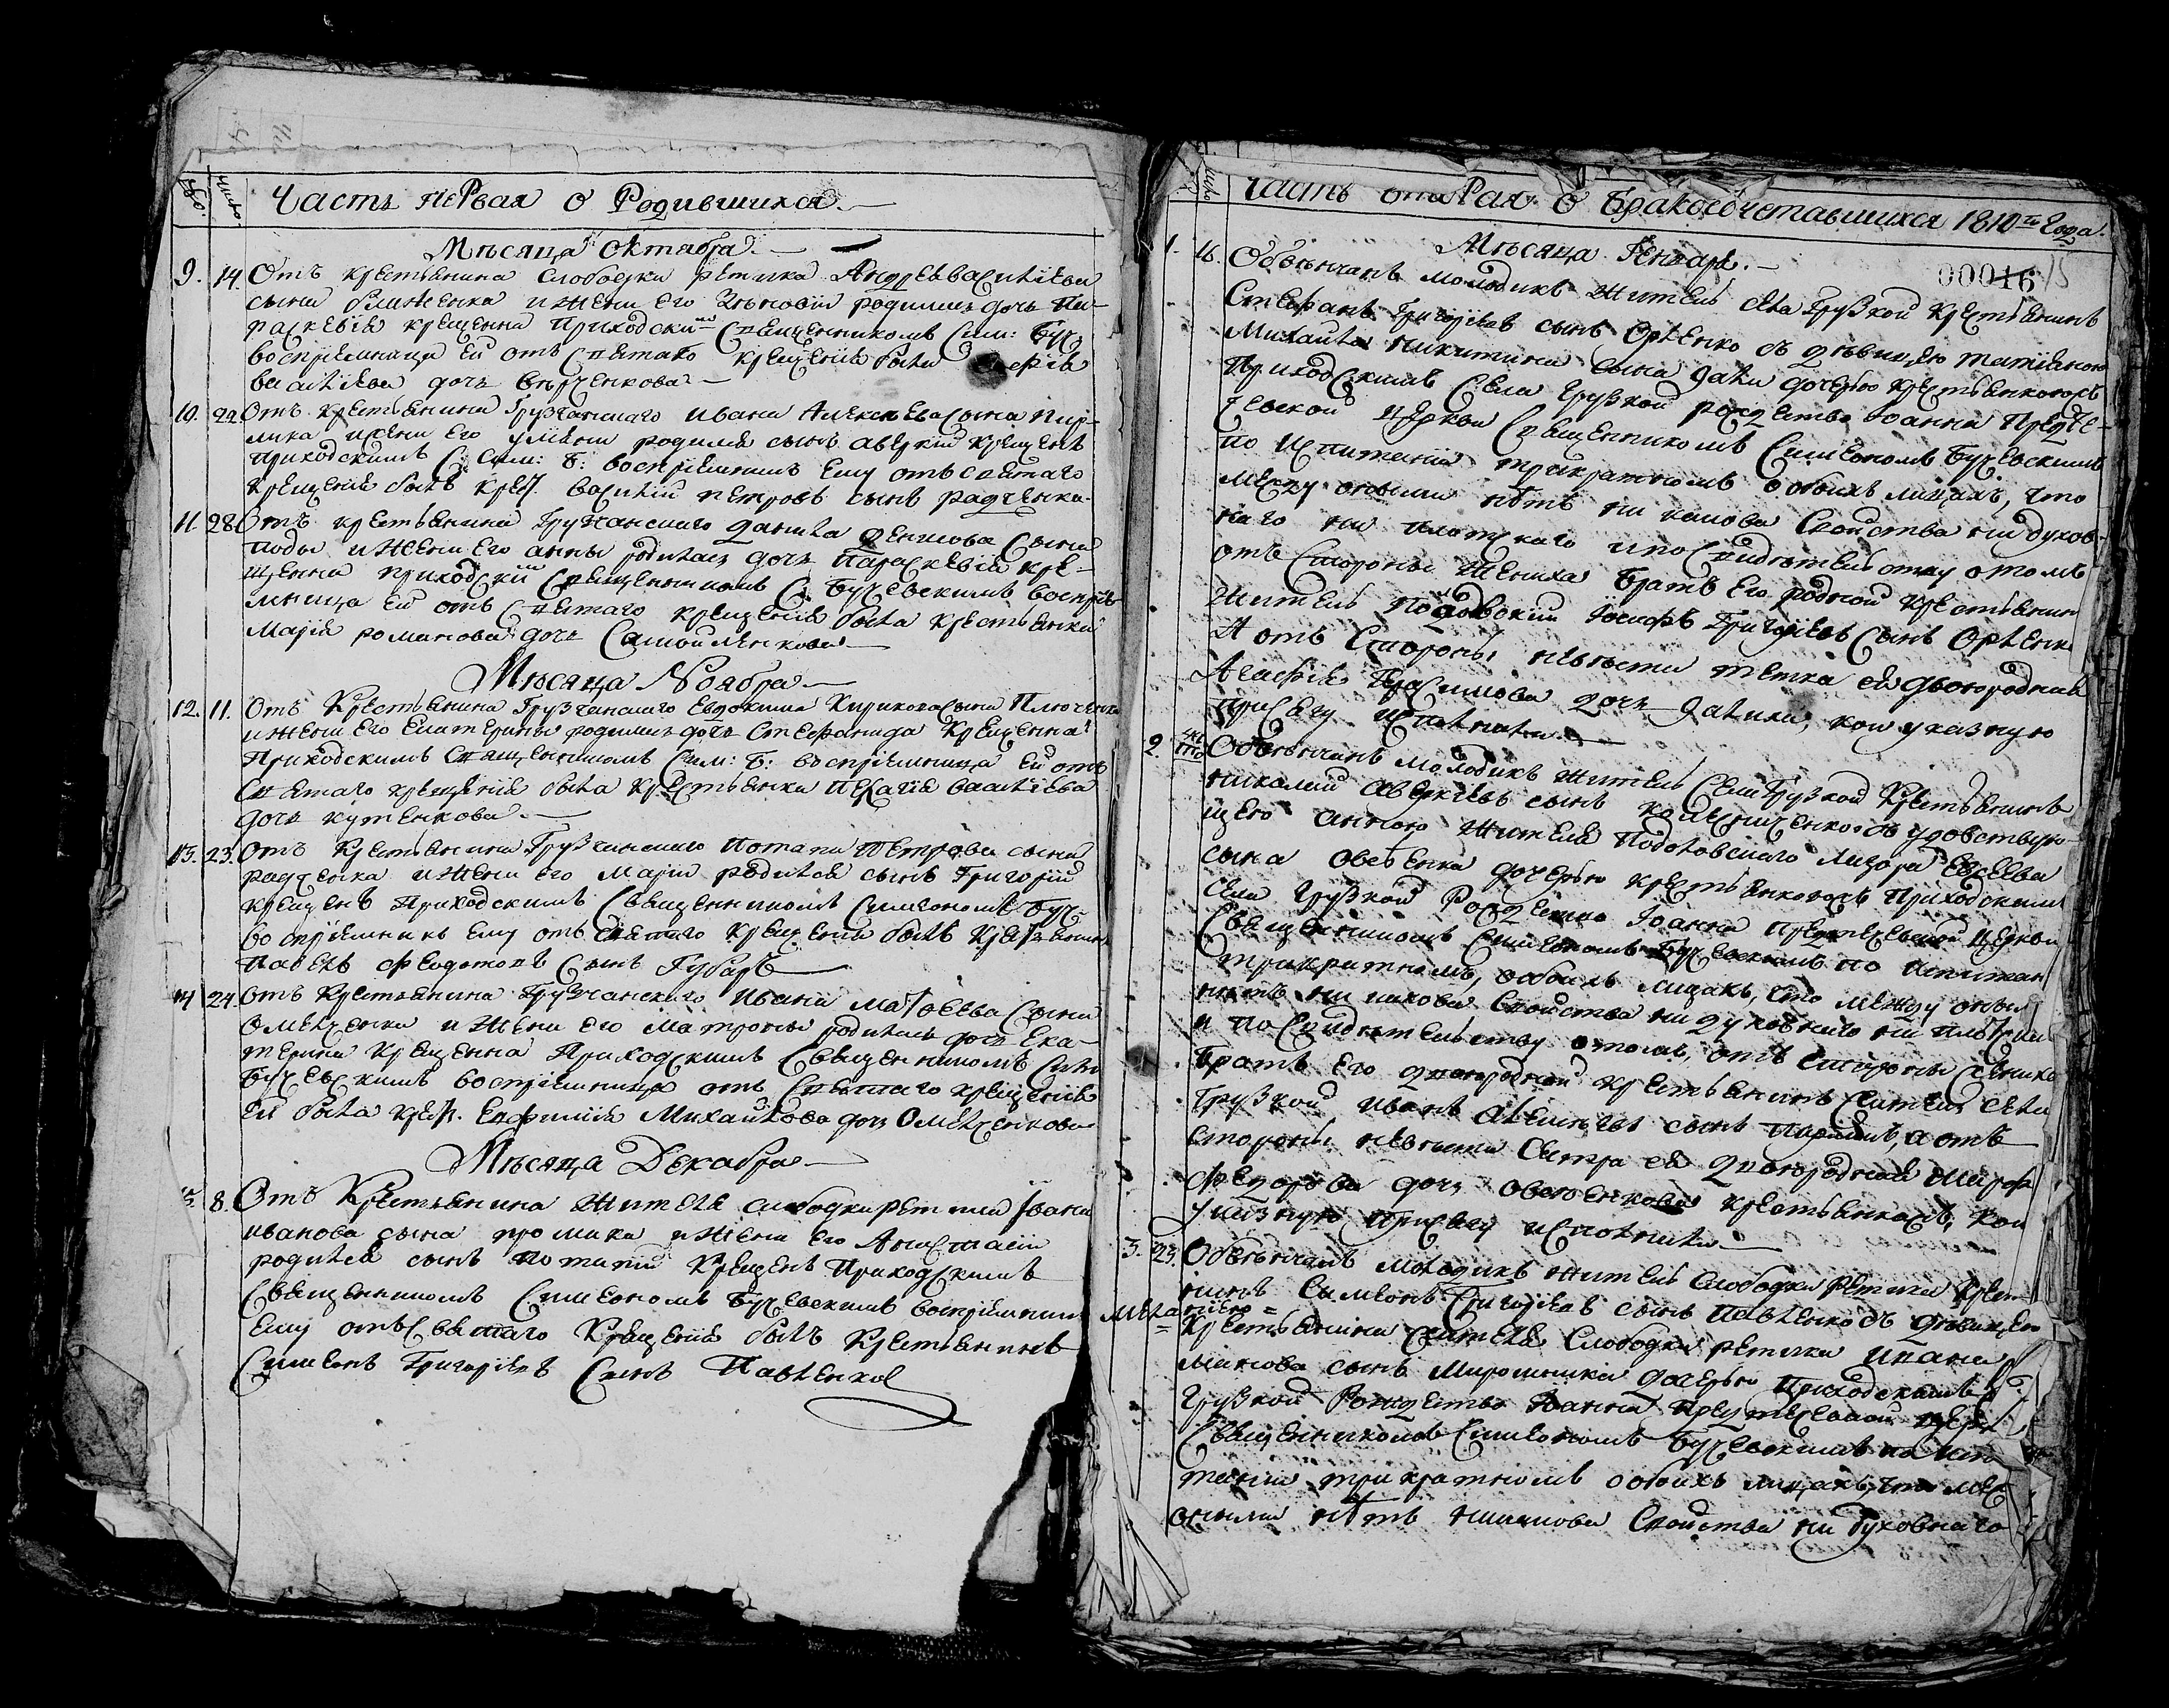 Часть первая о Родившихся.
Мѣсяца октября.
9. 14. Отъ крестьянина слободки ретика Андрея Василіева
сына и жени его Зѣновіи родилась дочь Па-
раскевія крещенна Приходскимъ Священникомъ Сим: Буч:
воспріемница ей отъ Святаго крещенія была
василіева дочь
10. 22. Отъ крестьянина Грузчанскаго Ивана Алексѣева сына
и жени его уліяни родился сынъ аверкій крещенъ
приходскимъ С: Сим: Б: воспріемникъ ему отъ святаго
крещенія былъ крест. василій петровъ сынъ радченка
11. 28. Отъ крестьянина Грузчанскаго данила денисова сына
и жени его анны родилась дочь Параскевія кре-
щенна приходским Священникомъ С. Бучевскимъ воспріе-
мница ей отъ Святаго крещенія была крестьянка
Марія романова дочь Самойленкова
Мѣсяца Ноября
12. 11. Отъ Крестьянина Грузчанскаго Евдокима Кирикова сына
и жени его Екатерины родилась дочь Стефанида Крещенна
Приходскимъ Священникомъ Сим: Б: воспріемница ей отъ
Святаго крещенія была крестьянка пелагія василіева
дочь кутенкова.
13. 23. Отъ Крестьянина Грузчанскаго Потапа Петрова сына
радченка и жени его Маріи родился сынъ Григорій
крещенъ Приходскимъ Священникомъ Симеономъ Буч:
воспріемникъ ему отъ святаго крещенія былъ крестьянинъ
Павелъ Федотовъ сынъ Губаръ
14 24. Отъ Крестьянина Грузчанскаго Ивана Матѳеева сына
Омелченка и жени его Матроны родилась дочь Ека-
терина Крещенна Приходскимъ Священникомъ Сим:
Бучевскимъ воспріемница отъ Святаго крещенія
ей была крест. Евфимія Михайлова дочь Омелченкова
Мѣсяца Декабря
15. 8. Отъ Крестьянина жителя слободки ретика Ивана
иванова сына и жени его Анастасіи
родился сынъ Потапій Крещенъ Приходскимъ
Священникомъ Симеономъ Бучевскимъ воспріемникъ
ему отъ Святаго Крещенія былъ Крестьянинъ
Симеонъ Григоріевъ Сынъ Павленко
Часть вторая о Бракосочетавшихся 1810го Года.
Мѣсяца Генваря.
00016
1. 16. Обвѣнчанъ молодикъ житель села Грузкой крестьянинъ
Стефанъ Григоріевъ сынъ Орленко съ дѣвицею татіяною
Михаила никитина сына дочерью крестьянкою
Приходскимъ Села Грузкой рождества Іоанна Предте-
чевской церкви Священникомъ Симеономъ Бучевскимъ
по испитаніи трикратномъ о обоихъ лицахъ, что
между оними нѣтъ ни какова Свойства ни духов-
наго ни плотскаго и по Свидѣтельству о томъ
отъ Стороны жениха братъ его родной крестьянин
житель Іосифъ Григоріевъ сынъ Орленко
А отъ Стороны невѣсти тетка ей двоюродная
Агафія Герасимова дочь кои указную
присягу исполнили
2. Обвѣнчанъ молодикъ житель Села Грузкой Крестьянинъ
николай аверкіевъ сынъ съ удовствую-
щею анною жителя Лазара Евсеева
сына дочерью крестьянкою Приходскимъ
села Грузкой Рождества Іоанна предтечевской церкви
Священникомъ Симеономъ Бучевскимъ по испитаніи
трикратномъ, о обоихъ лицахъ, что между оними
нѣтъ ни какова Свойства ни духовнаго ни плотскаго
и по Свидѣтельству о томъ, отъ стороны жениха
братъ его двоюродной крестьянинъ житель села
Грузкой Иванъ сынъ а отъ
стороны невѣсти Сестра ей двоюродная
Федорова дочь крестьянка, кои
указную присягу исполнили
3. 23. Обвѣнчанъ молодикъ житель слободки ретика Крест-
нинъ Симеонъ Григоріевъ сынъ Павленко съ дѣвицею
крестьянина жителя слободки ретика ивана
сына Мирошника дочерью Приходскимъ
Грузкой Рождества Іоанна Предтечевской церк
Священникомъ Симеономъ Бучевскимъ по испи
таніи трикратномъ о обоихъ лицахъ, что меж
оними нѣтъ никакова Свойства ни духовнаго